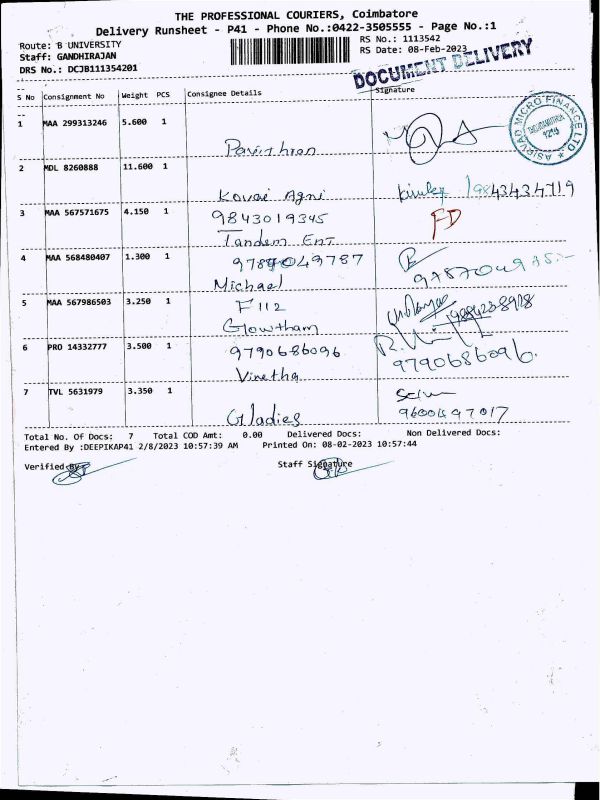 THE PROFESSIONAL COURIERS, Coimbatore
Delivery Runsheet - P41 - Phone No.:0422-3505555 - Page No.:1
Route: B UNIVERSITY
RS No.: 1113542
Staff: GANDHIRAJAN
RS Date: 08-Feb-2023
DRS No.: DCJB111354201
DOCUMENT DELIVERY
S No Consignment No Weight PCS Consignee Details Signature
1 MAA 299313246 5.600 1
Pavithran
ASIRVAD MICRO FINANCE LTD
2 MDL 8260888 11.600 1
Kovai Agni
9843434719
3 MAA 567571675 4.150 1 9843019345 FD
Tandem Ent
4 MAA 568480407 1.300 1 9787049787
Michael
5 MAA 567986503 3.250 1 F 112
Glowtham
6 PRO 14332777 3.500 1 9790686096 9790686096.
Vinetha
7 TVL 5631979 3.350 1
Gladies
Total No. Of Docs: 7 Total COD Amt: 0.00 Delivered Docs: Non Delivered Docs:
Entered By :DEEPIKAP41 2/8/2023 10:57:39 AM Printed On: 08-02-2023 10:57:44
Verified By
Staff Signature